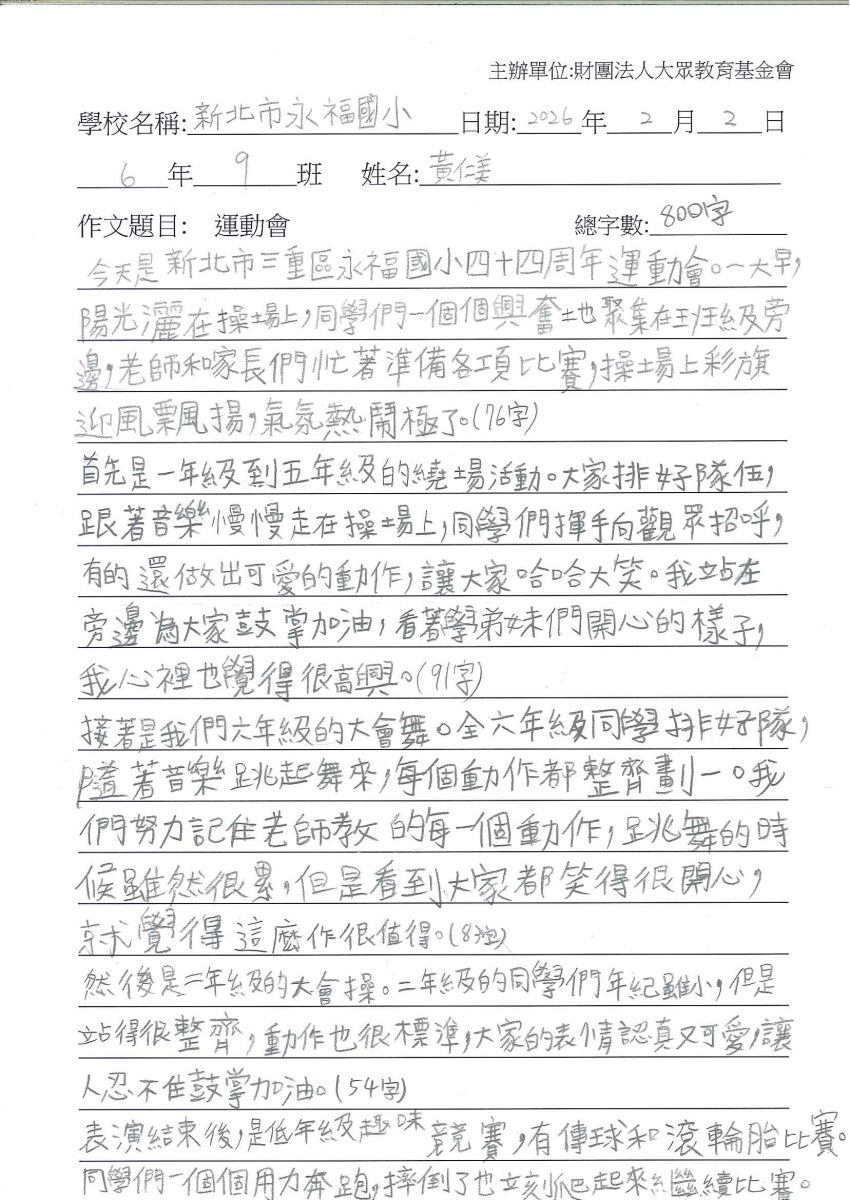 主辦單位:財團法人大眾教育基金會
學校名稱:新北市永福國小 日期:2026年2月2日
6年9班 姓名:黃仁美
作文題目: 運動會 總字數:800字
今天是新北市三重區永福國小四十四周年運動會。一大早,
陽光灑在操場上,同學們一個個興奮地聚集在班級旁
邊,老師和家長們忙著準備各項比賽,操場上彩旗
迎風飄揚,氣氛熱鬧極了。(76字)
首先是一年級到五年級的繞場活動。大家排好隊伍,
跟著音樂慢慢走在操場上,同學們揮手向觀眾招呼,
有的還做出可愛的動作,讓大家哈哈大笑。我站在
旁邊為大家鼓掌加油,看著學弟妹們開心的樣子,
我心裡也覺得很高興。(91字)
接著是我們六年級的大會舞。全六年級同學排好隊,
隨著音樂跳起舞來,每個動作都整齊劃一。我
們努力記住老師教的每一個動作,跳舞的時
候雖然很累,但是看到大家都笑得很開心,
就覺得這麼作很值得。(83字)
然後是二年級的大會操。二年級的同學們年紀雖小,但是
站得很整齊,動作也很標準,大家的表情認真又可愛,讓
人忍不住鼓掌加油。(54字)
表演結束後,是低年級趣味競賽,有傳球和滾輪胎比賽。
同學們一個個用力奔跑,摔倒了也立刻爬起來繼續比賽。